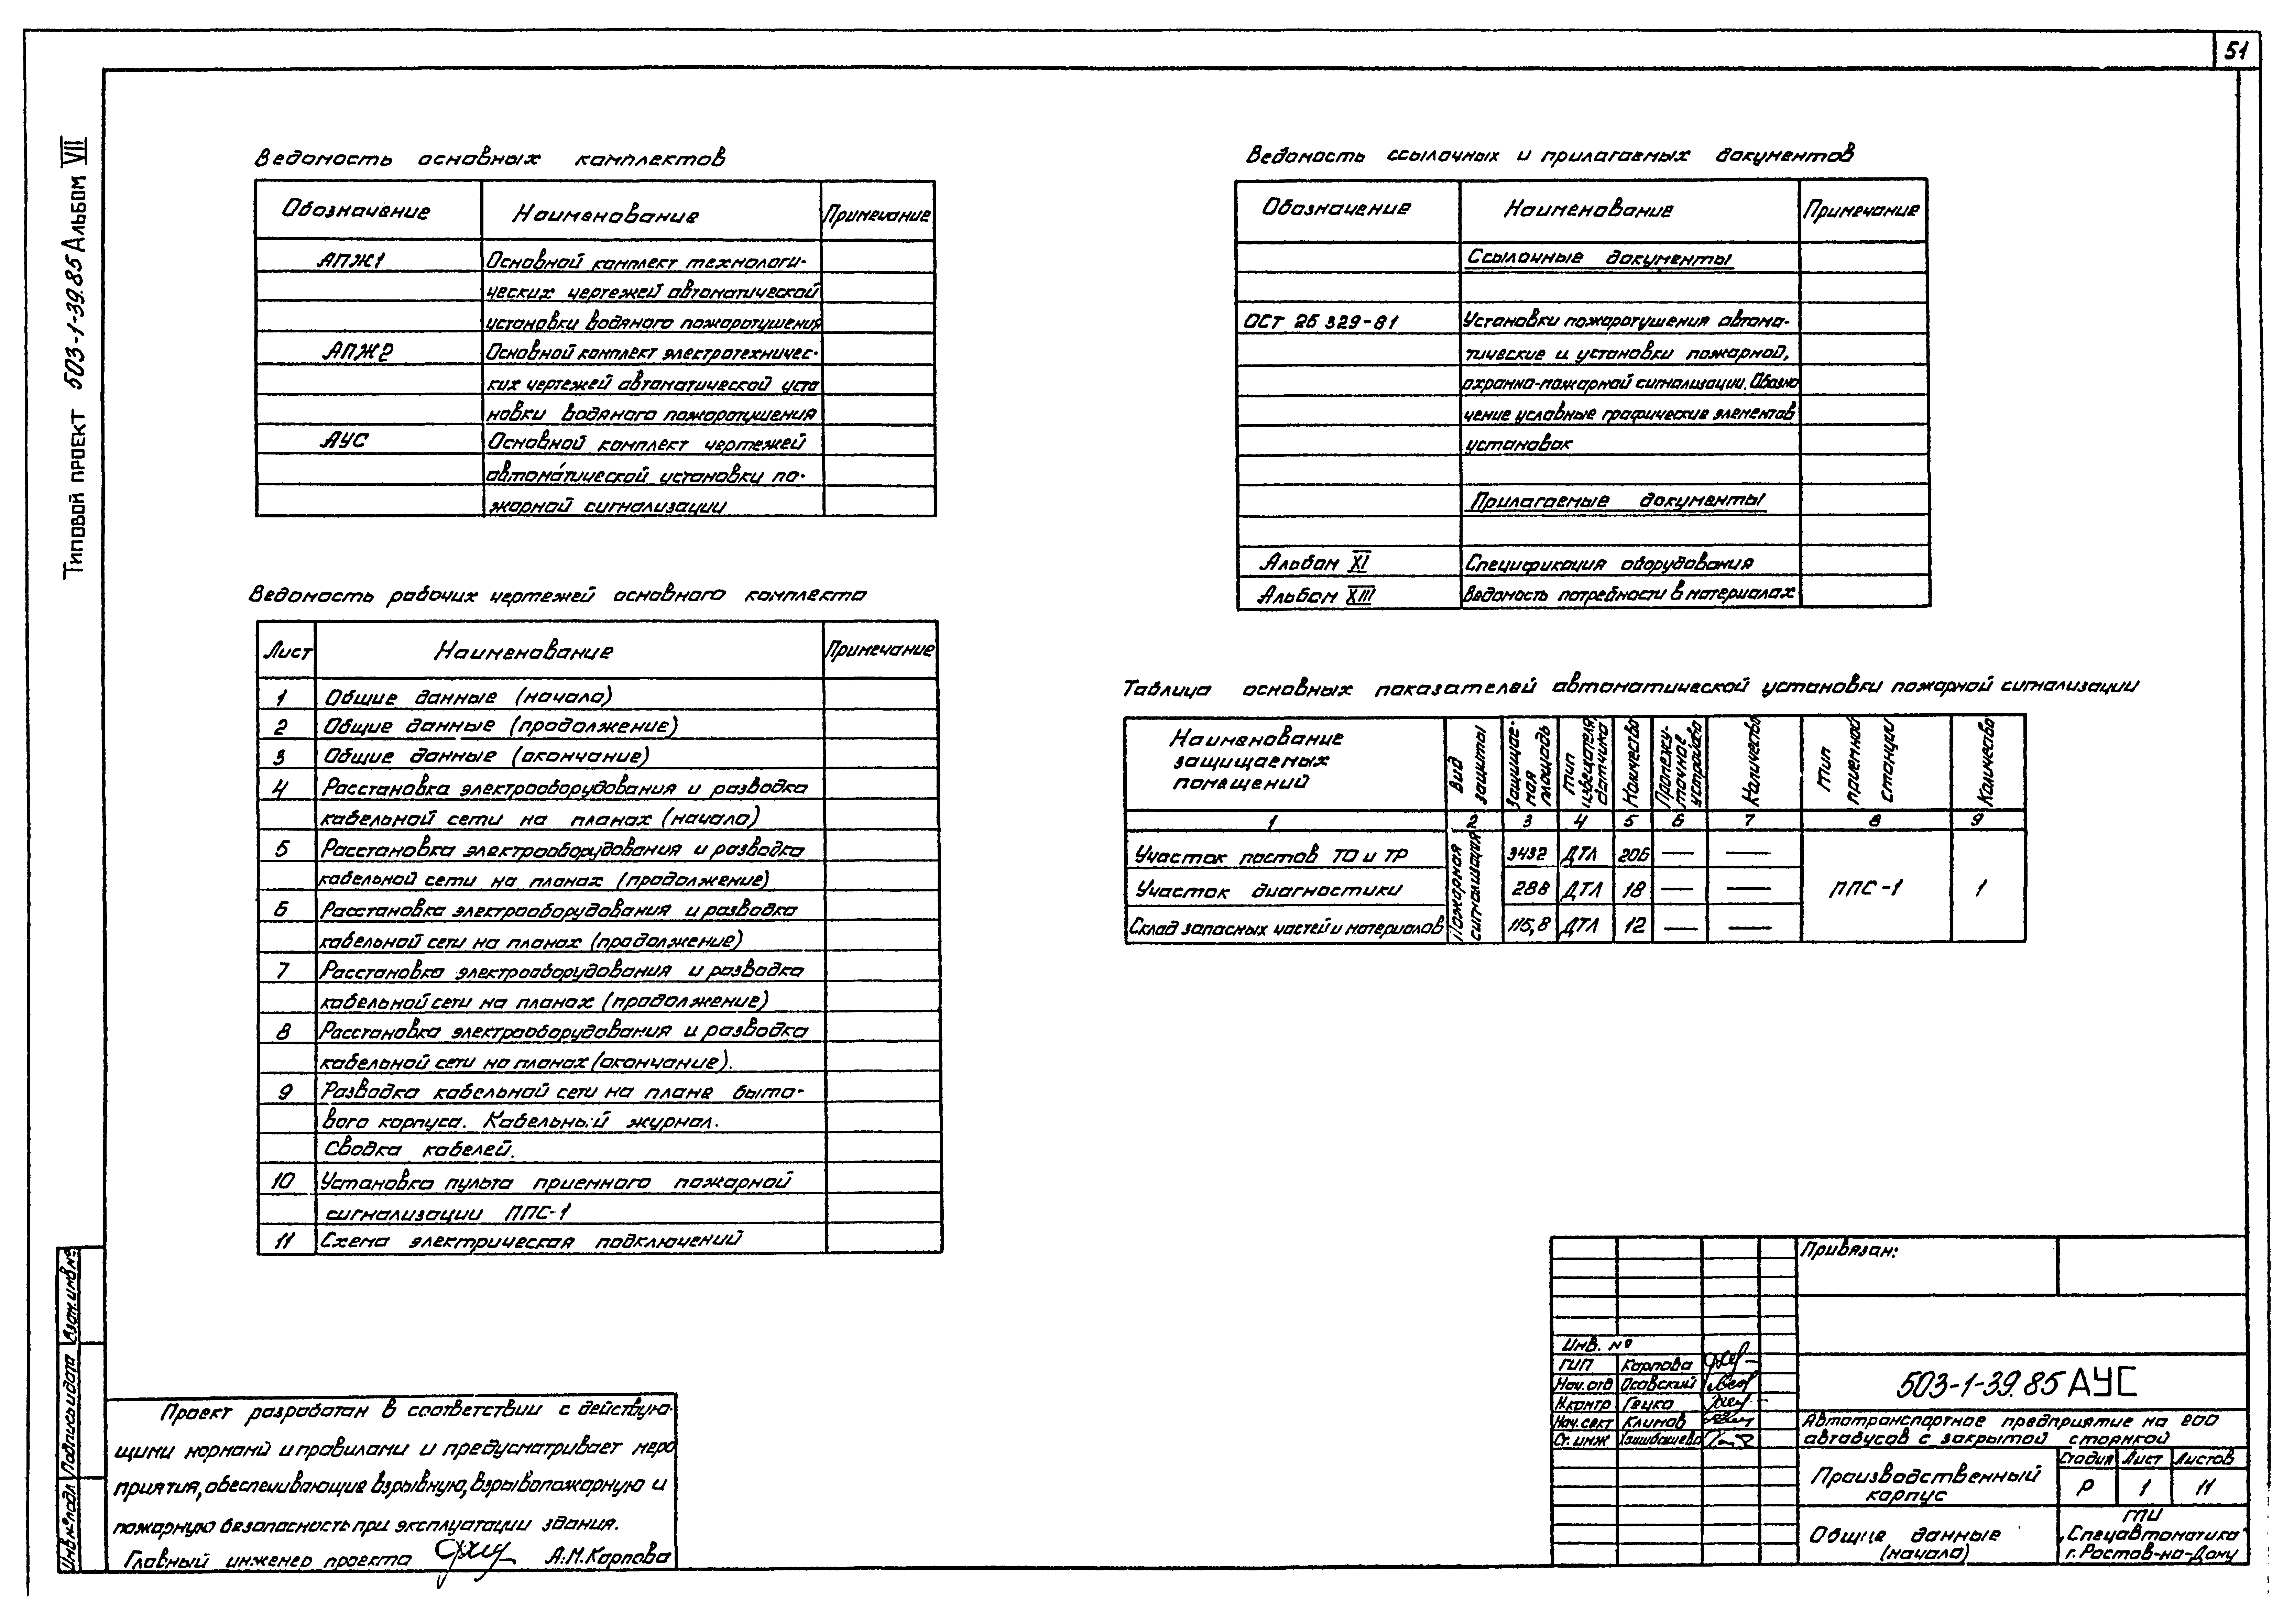 51
Типовой проект 503-1-39.85 Альбом VII
Ведомость основных комплектов
Обозначение Наименование Примечание
АПЖ1 Основной комплект технологи-
ческих чертежей автоматической
установки водяного пожаротушения
АПЖ2 Основной комплект электротехничес-
ких чертежей автоматической уста
новки водяного пожаротушения
АУС Основной комплект чертежей
автоматической установки по-
жарной сигнализации
Ведомость рабочих чертежей основного комплекта
Лист Наименование Примечание
1 Общие данные (начало)
2 Общие данные (продолжение)
3 Общие данные (окончание)
4 Расстановка электрооборудования и разводка
кабельной сети на планах (начало)
5 Расстановка электрооборудования и разводка
кабельной сети на планах (продолжение)
6 Расстановка электрооборудования и разводка
кабельной сети на планах (продолжение)
7 Расстановка электрооборудования и разводка
кабельной сети на планах (продолжение)
8 Расстановка электрооборудования и разводка
кабельной сети на планах (окончание).
9 Разводка кабельной сети на плане быто-
вого корпуса. Кабельный журнал.
Сводка кабелей.
10 Установка пульта приемного пожарной
сигнализации ППС-1
11 Схема электрическая подключений
Ведомость ссылочных и прилагаемых документов
Обозначение Наименование Примечание
Ссылочные документы
ОСТ 25 329-81 Установки пожаротушения автома-
тические и установки пожарной,
охранно-пожарной сигнализации. Обозна
чение условные графические элементов
установок
Прилагаемые документы
Альбом XI Спецификация оборудования
Альбом XIII Ведомость потребности в материалах
Таблица основных показателей автоматической установки пожарной сигнализации
Наименование защищаемых помещений
Вид защиты
Защищае-мая площадь
Тип извещателя, датчика
Количество
Промежу-точное устройство
Количество
Тип приемной станции
Количество
1 2 3 4 5 6 7 8 9
Пожарная сигнализация
Участок постов ТО и ТР 3432 ДТЛ 206 — —
Участок диагностики 288 ДТЛ 18 — — ППС-1 1
Склад запасных частей и материалов 115,8 ДТЛ 12 — —
Взам. инв.№
Подпись и дата
Инв.№ подл
Проект разработан в соответствии с действую-
щими нормами и правилами и предусматривает меро
приятия, обеспечивающие взрывную, взрывопожарную и
пожарную безопасность при эксплуатации здания.
Главный инженер проекта А.М.Карпова
Привязан:
Инв. №
ГИП Карпова
Нач.отд Осовский
Н.контр Гецко
Нач.сект Климов
Ст.инж
503-1-39.85 АУС
Автотранспортное предприятие на 200
автобусов с закрытой стоянкой
Производственный
корпус
Стадия Лист Листов
Р 1 11
Общие данные
(начало)
ГПИ
"Спецавтоматика"
г.Ростов-на-Дону